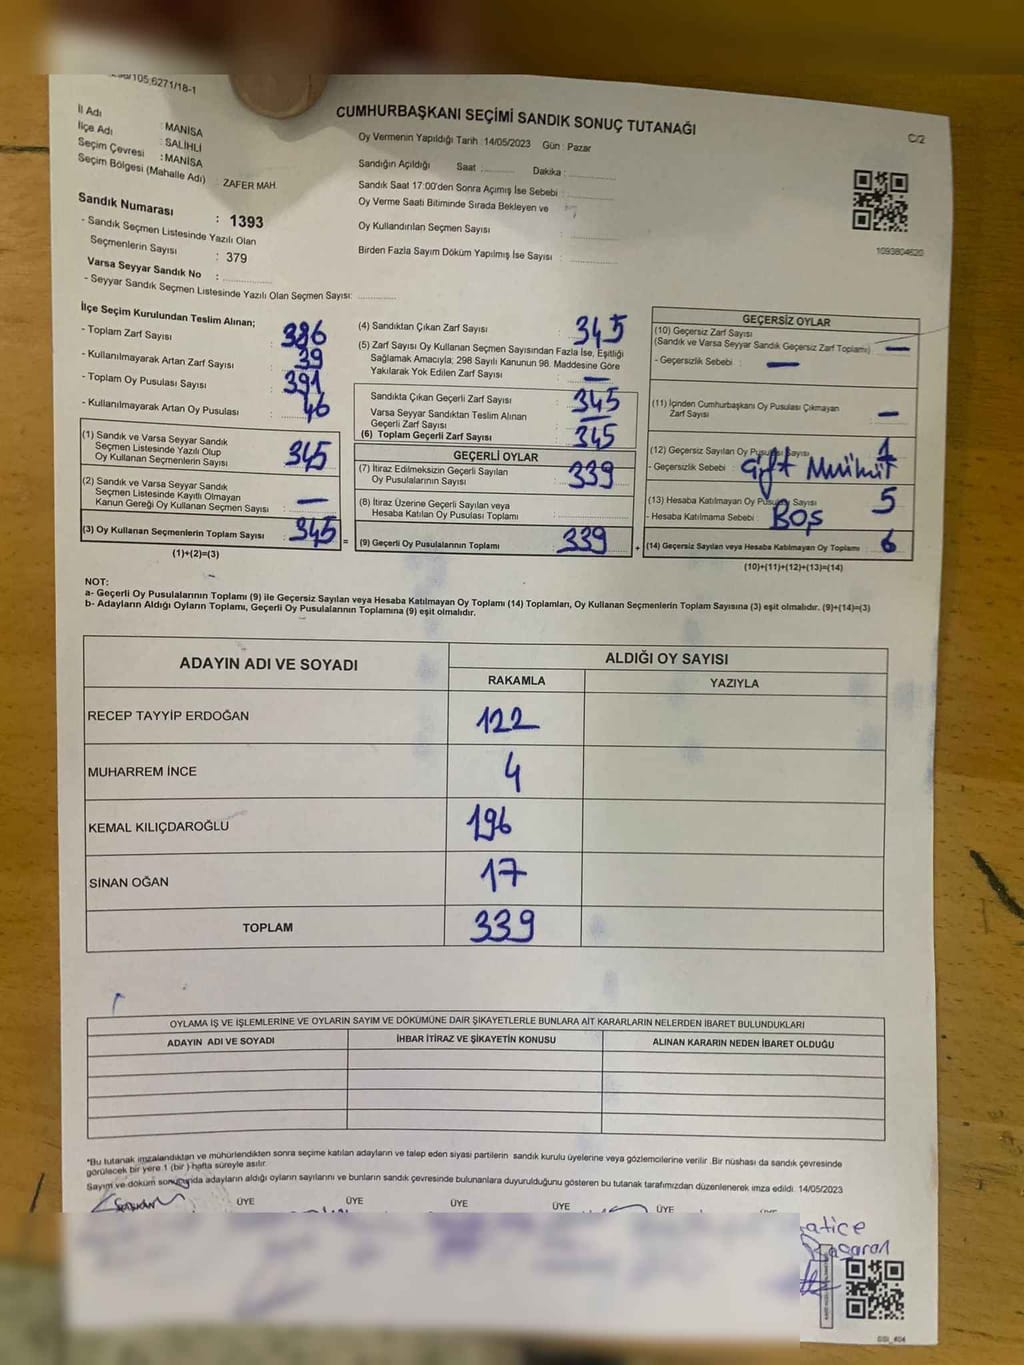 105.6271/18-1
CUMHURBAŞKANI SEÇİMİ SANDIK SONUÇ TUTANAĞI
C/2
İl Adı : MANİSA
İlçe Adı : SALİHLİ
Seçim Çevresi : MANİSA
Seçim Bölgesi (Mahalle Adı) : ZAFER MAH.
Oy Vermenin Yapıldığı Tarih : 14/05/2023 Gün : Pazar
Sandığın Açıldığı Saat : Dakika :
Sandık Saat 17:00'den Sonra Açımış İse Sebebi :
Oy Verme Saati Bitiminde Sırada Bekleyen ve
Oy Kullandırılan Seçmen Sayısı :
Birden Fazla Sayım Döküm Yapılmış İse Sayısı :
1093804620
Sandık Numarası : 1393
- Sandık Seçmen Listesinde Yazılı Olan
Seçmenlerin Sayısı : 379
Varsa Seyyar Sandık No :
- Seyyar Sandık Seçmen Listesinde Yazılı Olan Seçmen Sayısı:
İlçe Seçim Kurulundan Teslim Alınan;
- Toplam Zarf Sayısı : 386
- Kullanılmayarak Artan Zarf Sayısı : 39
- Toplam Oy Pusulası Sayısı : 391
- Kullanılmayarak Artan Oy Pusulası : 46
(1) Sandık ve Varsa Seyyar Sandık
Seçmen Listesinde Yazılı Olup
Oy Kullanan Seçmenlerin Sayısı : 345
(2) Sandık ve Varsa Seyyar Sandık
Seçmen Listesinde Kayıtlı Olmayan
Kanun Gereği Oy Kullanan Seçmen Sayısı : —
(3) Oy Kullanan Seçmenlerin Toplam Sayısı : 345 =
(1)+(2)=(3)
(4) Sandıktan Çıkan Zarf Sayısı : 345
(5) Zarf Sayısı Oy Kullanan Seçmen Sayısından Fazla İse, Eşitliği
Sağlamak Amacıyla, 298 Sayılı Kanunun 98. Maddesine Göre
Yakılarak Yok Edilen Zarf Sayısı : —
Sandıkta Çıkan Geçerli Zarf Sayısı : 345
Varsa Seyyar Sandıktan Teslim Alınan
Geçerli Zarf Sayısı : —
(6) Toplam Geçerli Zarf Sayısı : 345
GEÇERLİ OYLAR
(7) İtiraz Edilmeksizin Geçerli Sayılan
Oy Pusulalarının Sayısı : 339
(8) İtiraz Üzerine Geçerli Sayılan veya
Hesaba Katılan Oy Pusulası Toplamı :
(9) Geçerli Oy Pusulalarının Toplamı : 339 +
GEÇERSİZ OYLAR
(10) Geçersiz Zarf Sayısı
(Sandık ve Varsa Seyyar Sandık Geçersiz Zarf Toplamı) : —
- Geçersizlik Sebebi : —
(11) İçinden Cumhurbaşkanı Oy Pusulası Çıkmayan
Zarf Sayısı : —
(12) Geçersiz Sayılan Oy Pusulası Sayısı : 1
- Geçersizlik Sebebi : Çift Mühür
(13) Hesaba Katılmayan Oy Pusulası Sayısı : 5
- Hesaba Katılmama Sebebi : BOŞ
(14) Geçersiz Sayılan veya Hesaba Katılmayan Oy Toplamı : 6
(10)+(11)+(12)+(13)=(14)
NOT:
a- Geçerli Oy Pusulalarının Toplamı (9) ile Geçersiz Sayılan veya Hesaba Katılmayan Oy Toplamı (14) Toplamları, Oy Kullanan Seçmenlerin Toplam Sayısına (3) eşit olmalıdır. (9)+(14)=(3)
b- Adayların Aldığı Oyların Toplamı, Geçerli Oy Pusulalarının Toplamına (9) eşit olmalıdır.
ADAYIN ADI VE SOYADI ALDIĞI OY SAYISI
RAKAMLA YAZIYLA
RECEP TAYYİP ERDOĞAN 122
MUHARREM İNCE 4
KEMAL KILIÇDAROĞLU 196
SİNAN OĞAN 17
TOPLAM 339
OYLAMA İŞ VE İŞLEMLERİNE VE OYLARIN SAYIM VE DÖKÜMÜNE DAİR ŞİKAYETLERLE BUNLARA AİT KARARLARIN NELERDEN İBARET BULUNDUKLARI
ADAYIN ADI VE SOYADI İHBAR İTİRAZ VE ŞİKAYETİN KONUSU ALINAN KARARIN NEDEN İBARET OLDUĞU
*Bu tutanak imzalandıktan ve mühürlendikten sonra seçime katılan adayların ve talep eden siyasi partilerin sandık kurulu üyelerine veya gözlemcilerine verilir. Bir nüshası da sandık çevresinde
görülecek bir yere 1 (bir) hafta süreyle asılır.
Sayım ve döküm sonucunda adayların aldığı oyların sayılarını ve bunların sandık çevresinde bulunanlara duyurulduğunu gösteren bu tutanak tarafımızdan düzenlenerek imza edildi. 14/05/2023
BAŞKAN ÜYE ÜYE ÜYE ÜYE ÜYE
atice